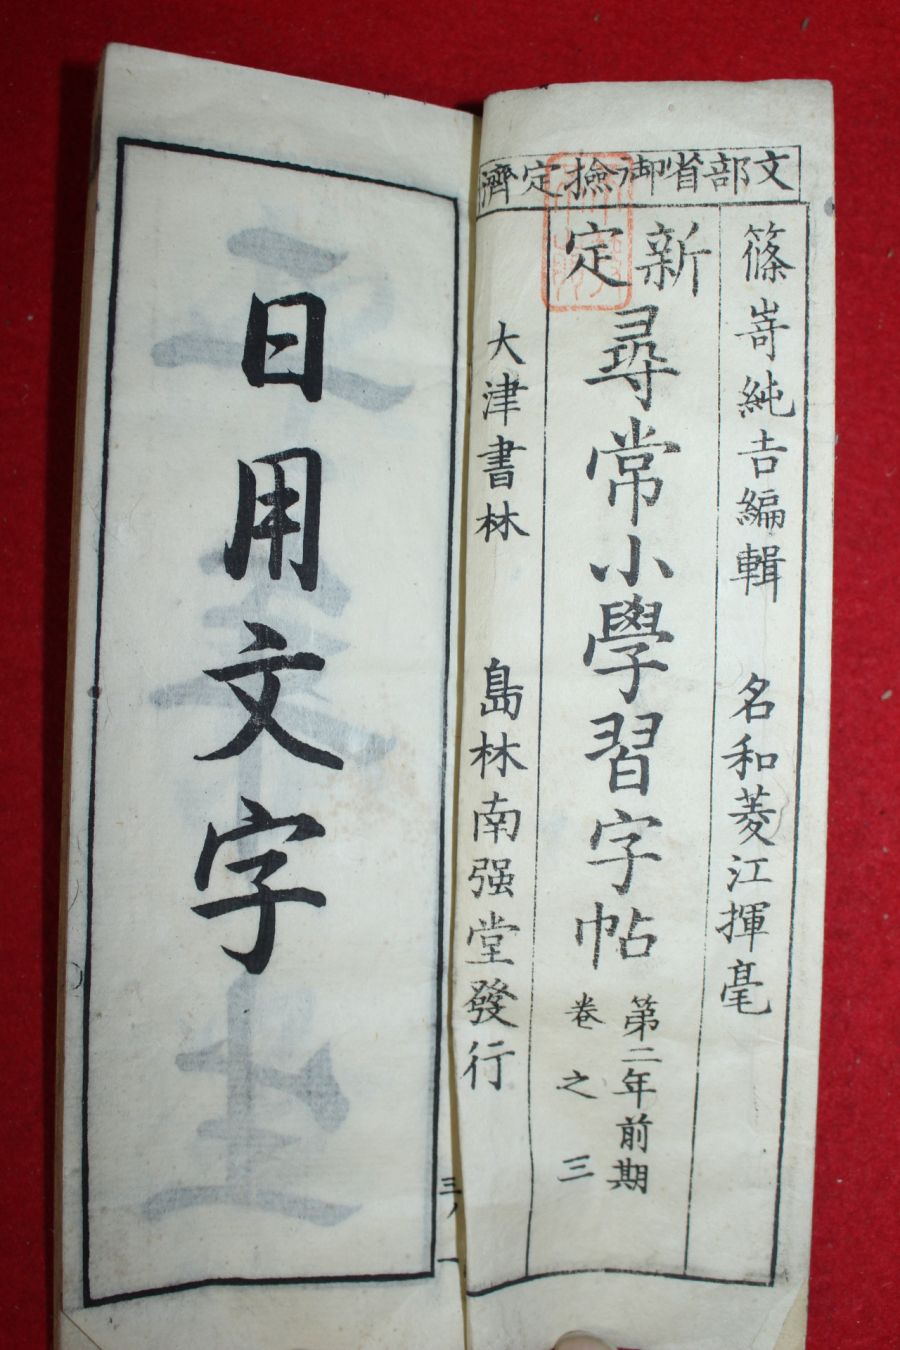 文部省御撿定濟
篠嵜純吉編輯　名和菱江揮毫
新定
尋常小學習字帖
第二年前期
卷之三
大津書林　島林南强堂發行
日用文字
三ノ一